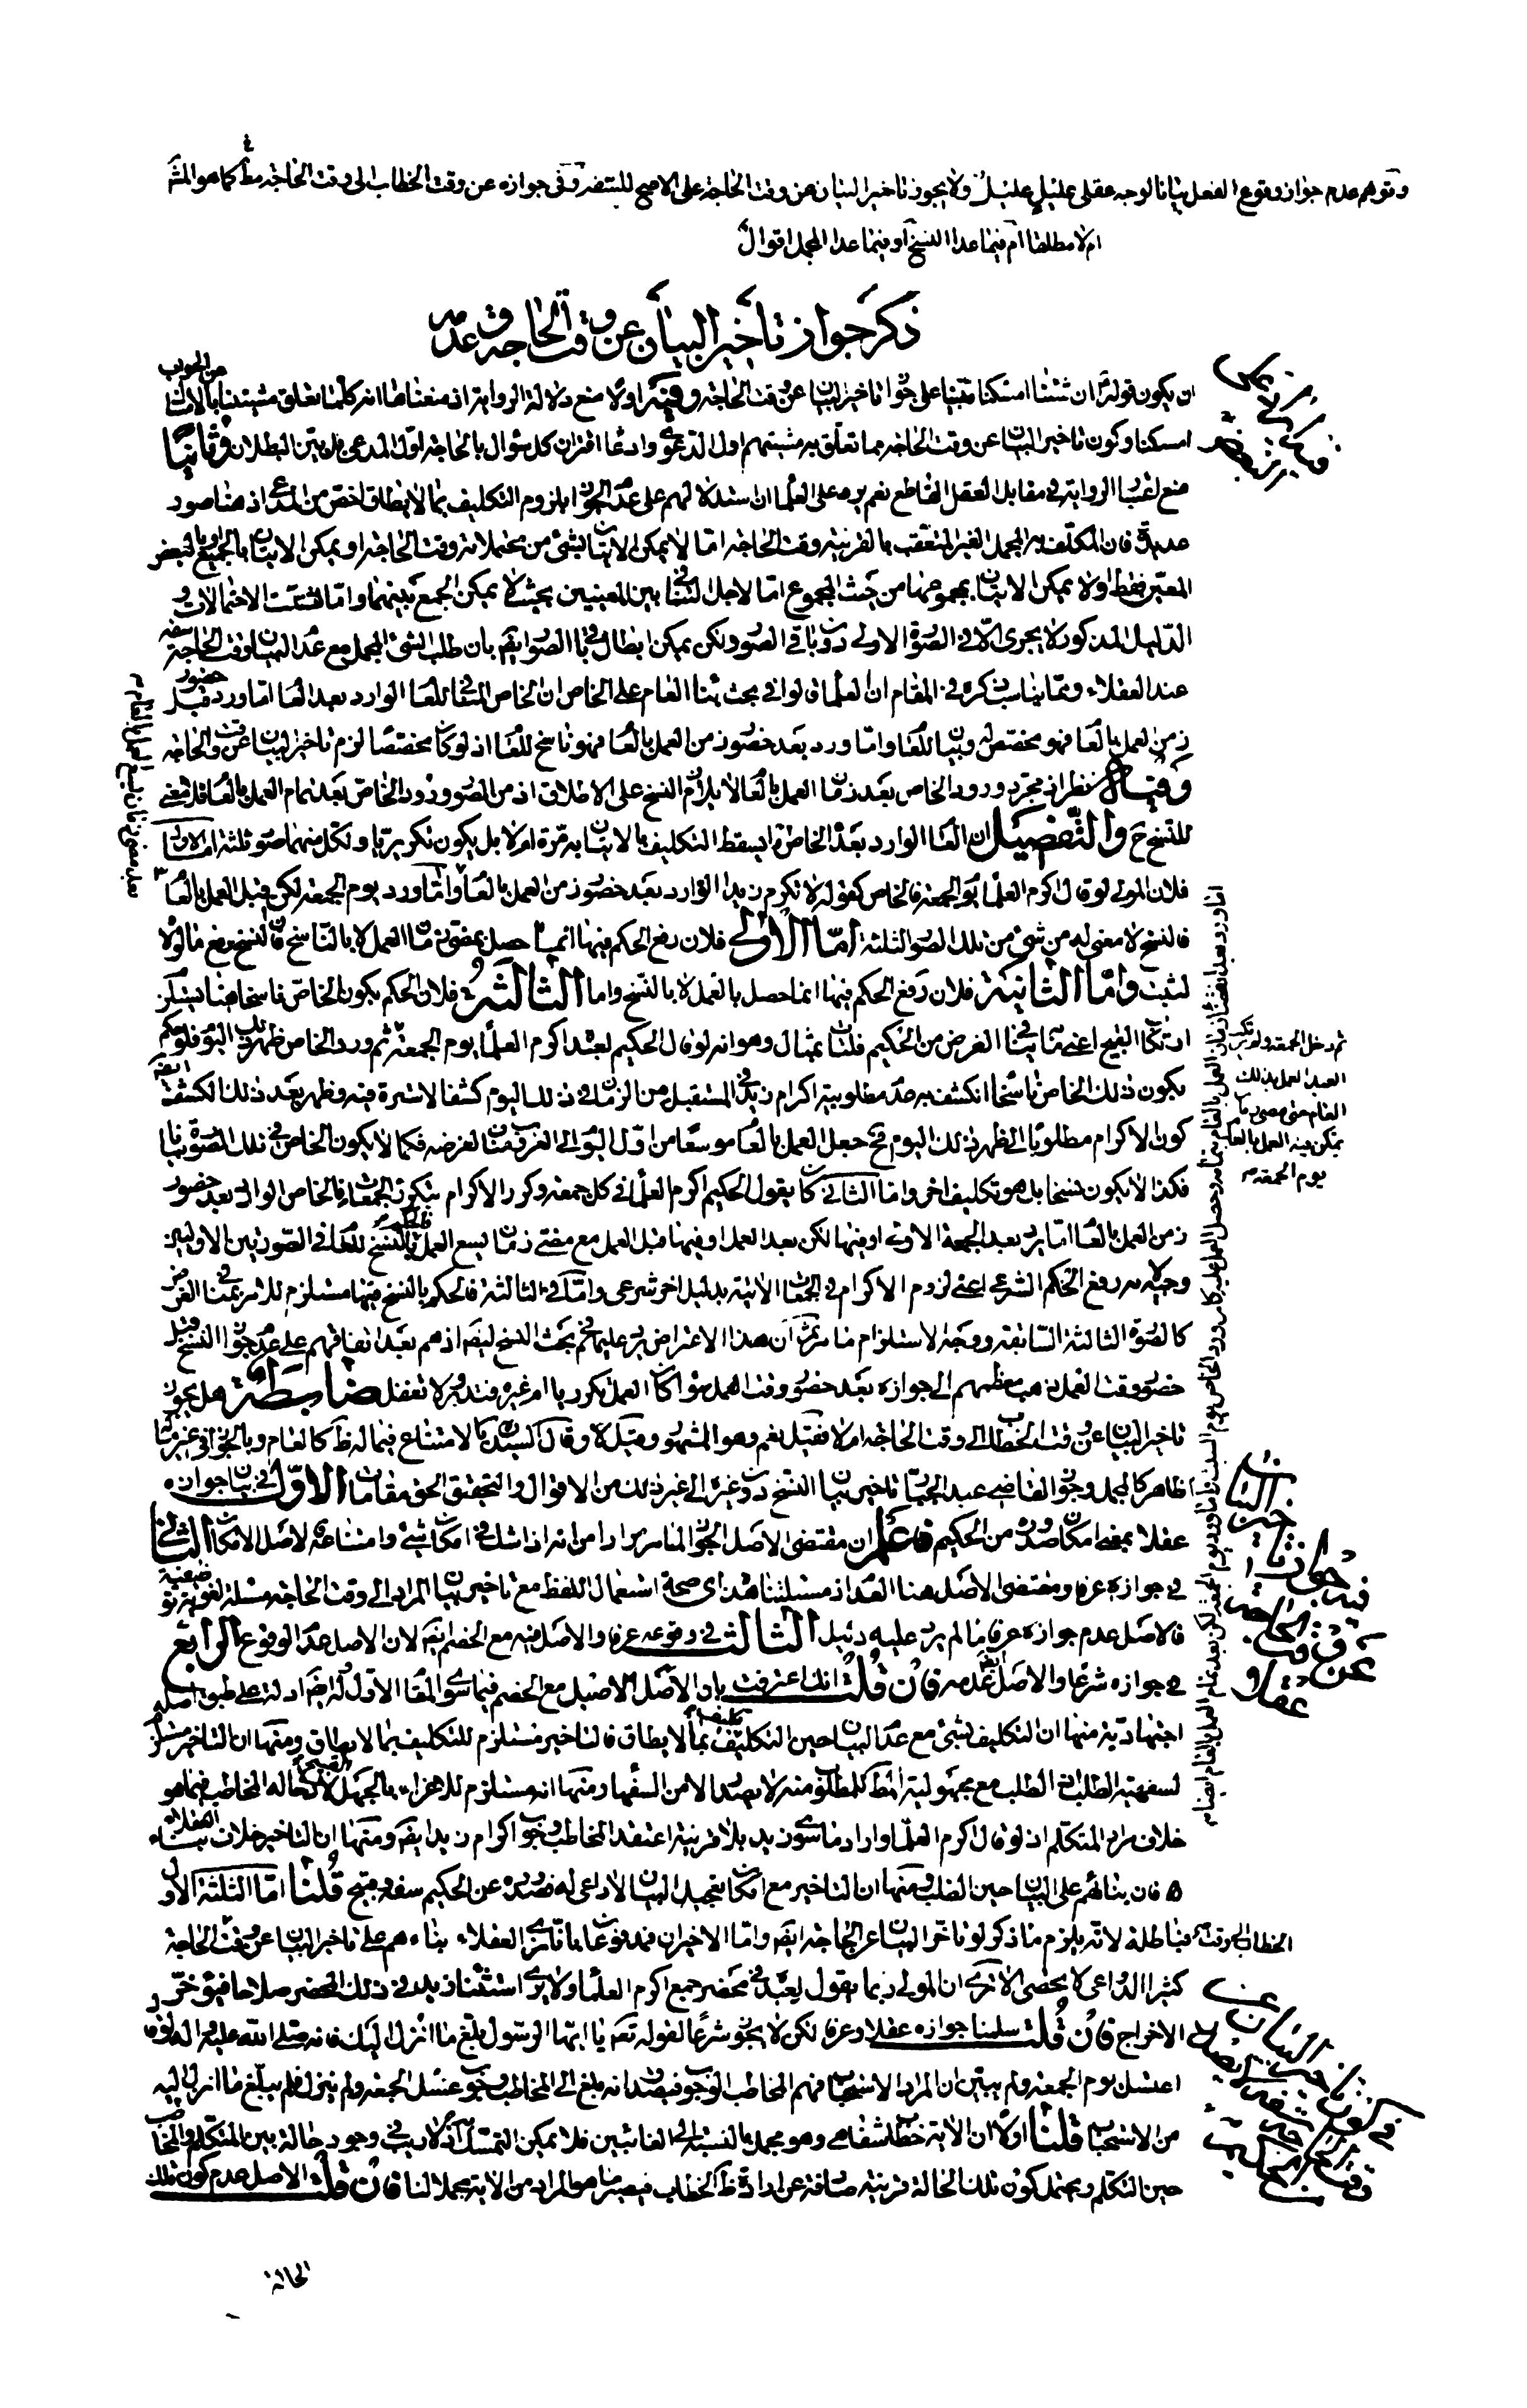 وتوهم عدم جواز وقوع الفعل بيانا لوجه عقلى عليل ولا يجوز تاخير البيان عن وقت الحاجة على الاصح للسفه وفى جوازه عن وقت الخطاب الى وقت الحاجة مط كما هو المش
ام لا مطلقا ام فيما عدا النسخ او فيما عدا المجمل اقوال
ذكر جواز تاخير البيان عن وقت الحاجة وعدمه
ان يكون قوله ان شئنا امسكنا مبنيا على جواز تاخير البيان عن وقت الحاجة وفيه اولا منع دلالة الرواية اذ معناها انه كلما تعلق مشيتنا
امسكنا وكون تاخير البيان عن وقت الحاجة مما تعلق به مشيتهم اول الدعوى وادعا اقتران كل سؤال بالحاجة اول المدعى بل بين البطلان وثانيا
منع الرواية فى مقابل العقل القاطع نعم يرد على العلما ان استدلالهم على عدم الجواز بلزوم التكليف بما لا يطاق اخص من المدعى اذ هنا صور
عديدة فان المكلف به المجمل الغير المتعقب بالقرينة وقت الحاجة اما لا يمكن الاتيان بشئ من محتملاته وقت الحاجة او يمكن الاتيان بالجميع او بالبعض
المعين فقط او لا يمكن الاتيان بمجموعها من حيث المجموع اما لاجل التنافى بين المعنيين بحيث لا يمكن الجمع بينهما واما لتشتت الاحتمالات و
الدليل المذكور لا يجرى الا فى الصورة الاولى دون باقى الصور ولكن يمكن ابطال باقى الصور ايضا بان طلب الشئ المجمل مع عدم البيان وقت الحاجة سفه
عند العقلاء ومما يناسب ذكره فى المقام ان العلما قالوا فى بحث بناء العام على الخاص ان الخاص المنافى للعام الوارد بعد العام اما ورد قبل حضور
زمن العمل بالعام فهو مخصص له وبيان للعام واما ورد بعد حضور زمن العمل بالعام فهو ناسخ للعام اذ لو كان مخصصا لزم تاخير البيان عن وقت الحاجة
وفيه نظر اذ مجرد ورود الخاص بعد زمان العمل بالعام لا يلازم النسخ على الاطلاق اذ من الصور ورود الخاص بعد تمام العمل بالعام فلا معنى
للنسخ ح والتفصيل ان العام الوارد بعده الخاص اما يسقط التكليف بالاتيان به مرة ام لا بل يكون تكريريا ولكل منهما صور ثلثة اما الاول
فلان المولى لو قال اكرم العلما يوم الجمعة فالخاص كقوله لا تكرم زيدا الوارد بعد حضور زمن العمل بالعام واما ورد يوم الجمعة لكن قبل العمل بالعام
فالنسخ لا معنى له من شئ من تلك الصور الثلثة اما الاولى فلان رفع الحكم فيها انما حصل بمضى زمان العمل لا بالناسخ فان النسخ رفع ما لولا
لثبت واما الثانية فلان رفع الحكم فيها انما حصل بالعمل لا بالنسخ واما الثالثة فلان الحكم بكون الخاص ناسخا هنا يستلزم
ارتكاب القبيح اعنى ما ينافى الغرض من الحكيم فلنات بمثال وهو انه لو قال الحكيم لعبده اكرم العلما يوم الجمعة ثم ورد الخاص ظهر ذلك اليوم فلو حكم
بكون ذلك الخاص ناسخا انكشف به عدم مطلوبية اكرام زيد فى المستقبل من الزمان فى ذلك اليوم كشفا لا سترة فيه وظهر بعد ذلك الكشف
كون الاكرام مطلوبا الى ظهر ذلك اليوم مع جعل العمل بالعام موسعا من اول اليوم الى الغروب مناف لغرضه فكما لا يكون الخاص فى تلك الصورة بيانا
فكذا لا يكون نسخا بل هو تكليف اخر واما الثانى كان يقول الحكيم اكرم العلما فى كل جمعة وكرر الاكرام بتكرر الجمعات فالخاص الوارد بعد حضور
زمن العمل بالعام اما يرد بعد الجمعة الاولى او فيها لكن بعد العمل او فيها قبل العمل مع مضى زمان يسع العمل فالنسخ للعام فى الصورتين الاوليين
وجيه لانه رفع الحكم الشرعى اعنى لزوم الاكرام فى الجمعات الاتية بدليل اخر شرعى واما فى الثالثة فالحكم بالنسخ فيها مستلزم لما ينافى الغرض
كالصورة الثالثة السابقة ووجه الاستلزام ما مر ثم ان هذا الاعتراض يرد عليهم فى بحث النسخ ايضا اذ هم بعد اتفاقهم على عدم جواز النسخ قبل
حضور وقت العمل ذهب معظمهم الى جوازه بعد حضور وقت العمل سواء كان العمل تكرريا ام غيره فتدبر ولا تغفل ضابطة هل يجوز
تاخير البيان عن وقت الخطاب الى وقت الحاجة ام لا فقيل نعم وهو المشهور وقيل لا وقال السيد بالامتناع فيما له ظاهر كالعام وبالجواز فى غير ما له
ظاهر كالمجمل وجوز القاضى عبد الجبار تاخير بيان النسخ دون غيره الى غير ذلك من الاقوال والتحقيق الحق مقامات الاول فى بيان جوازه
عقلا بمعنى امكان صدوره من الحكيم فاعلم ان مقتضى الاصل الجواز لما مر مرارا من انه اذا شك فى امكان شئ وامتناعه لاصل الامكان الثانى
فى جوازه عرفا ومقتضى الاصل هنا العدم اذ مسئلتنا هذه اى صحة استعمال اللفظ مع تاخير بيان المراد الى وقت الحاجة مسئلة لغوية توقيفية
فالاصل عدم جوازه عرفا ما لم يرد عليه دليل الثالث فى وقوعه عرفا والاصل فيه مع الخصم ايضا لان الاصل عدم الوقوع الرابع
فى جوازه شرعا والاصل ايضا عدمه فان قلت انك اعترفت بان الاصل الاصيل مع الخصم فيما سوى المقام الاول وله ايضا ادلة على طبق اصله
اجتهادية منها ان التكليف بشئ مع عدم البيان حين التكليف تكليف بما لا يطاق فالتاخير مستلزم للتكليف بما لا يطاق ومنها ان التاخير مستلزم
لسفهية الطلب فان الطلب مع مجهولية المط للمطلوب منه لا يصدر الا من السفها ومنها انه مستلزم للاغراء بالجهل القبيح لانه احاله المخاطب فيما هو
خلاف مراد المتكلم اذ لو قال اكرم العلما واراد ما سوى زيد بلا قرينة اعتقد المخاطب وجوب اكرام زيد ايضا ومنها ان التاخير خلاف بناء العقلاء
فان بنائهم على البيان حين الطلب ومنها ان التاخير مع امكان تعجيل البيان لا داعى له فصدوره عن الحكيم سفه وقبيح قلنا اما الثلثة الاول
فباطلة لانه يلزم ما ذكر لو تاخر البيان عن الحاجة ايضا واما الاخيران فمدفوعان بانا نرى العقلاء بناءهم على تاخير البيان عن وقت الخطاب الى وقت الحاجة
كثيرا لدواعى لا يحصى الا ترى ان المولى ربما يقول لعبده فى محضر جمع اكرم العلما ولا يرى استثناء زيد فى ذلك المحضر صلاحا فيؤخر
الاخراج فان قلت سلمنا جوازه عقلا وعرفا لكن لا يجوز شرعا لقوله تعم يا ايها الرسول بلغ ما انزل اليك فانه صلى الله عليه واله لو قال
اغتسل يوم الجمعة ولم يبين ان المراد الاستحباب فهم المخاطب الوجوب فيصدق انه بلغ الى المخاطب وجوب غسل الجمعة ولم ينزل فلم يبلغ ما انزل اليه
من الاستحباب قلنا اولا ان الاية خطاب شفاهى وهو مجمل بالنسبة الى الغائبين فلا يمكن التمسك به اذ لا ريب فى وجود حالة بين المتكلم والمخاطب
حين التكلم ويحتمل كون تلك الحالة قرينة صارفة عن ارادة ظ الخطاب فيصير ما هو المراد من الاية مجملا لنا فان قلت الاصل عدم كون تلك
الحالة
ثم دخل الجمعة ولم يكرم
العبد العمل بذلك
العام حتى مضى زمان
يمكن فيه العمل بالعام
يوم الجمعة
فى جواز تاخير البيان
عن وقت الحاجة
عقلا و